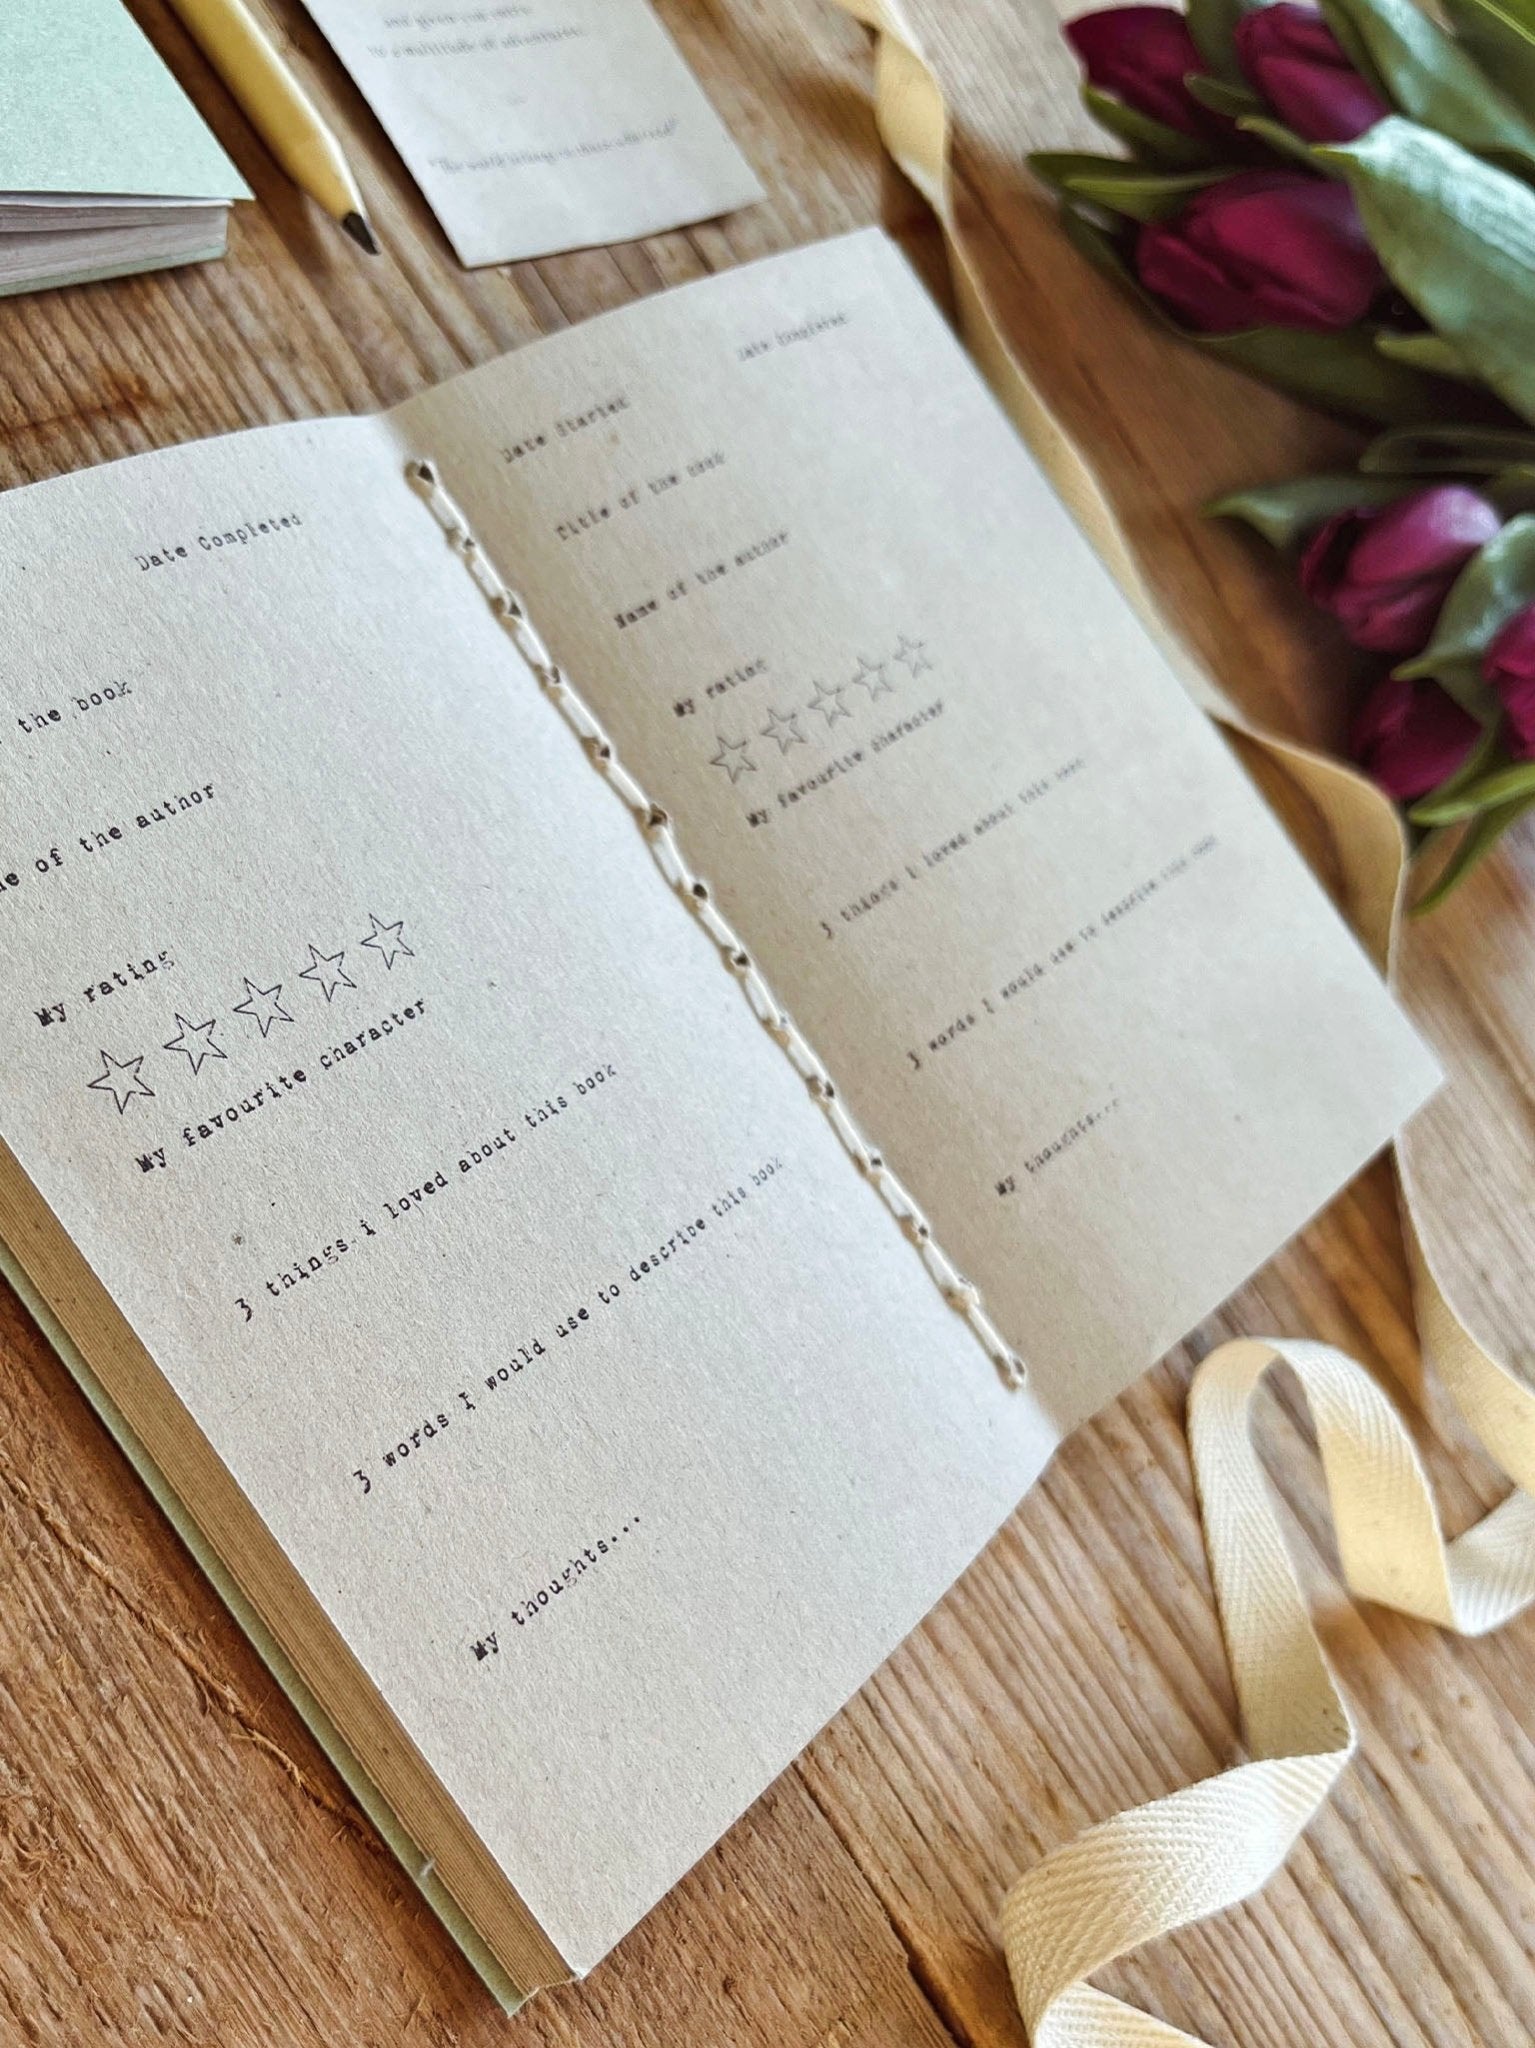 and given
to a multitude of adventures.
Date Completed
the book
of the author
My rating
My favourite character
3 things i loved about this book
3 words I would use to describe this book
My thoughts...
Date Started
Date Completed
Title of the book
Name of the author
My rating
My favourite character
3 things i loved about this book
3 words I would use to describe this book
My thoughts...